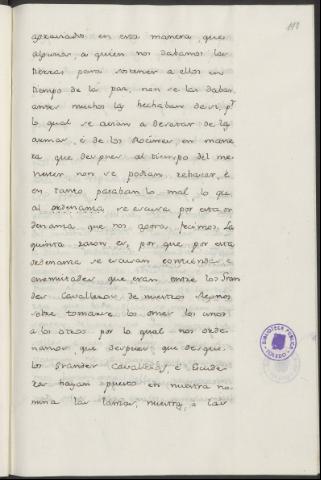 118
apocados en esta manera, que
algunos, a quien nos dabamos las
tierras para sostener a ellos en
tiempo de la paz, non se las daban,
antes muchos las hechaban de si, pr.
lo qual se avian a desatar de las
armas, é de los Rocines, en mane
ra que despues al tiempo del me
nester non se podian rehacer, é
en tanto pasaban lo mal, lo que
al ordenamos, se escusa por esta or
denanza que nos agora fecimos. La
quinta razon es, por que por esta
ordenanza se escusan contiendas, é
enemistades que eran entre los Gran
des Cavalleros de nuestros Regnos
sobre tomarse los omes los unos
a los otros por lo qual nos orde
namos que despues que desque
los Grandes Cavalleros é Escude
ros hayan puesto en nuestra no
mina las lanzas, nuestras, a las
BIBLIOTECA PUBLICA
TOLEDO